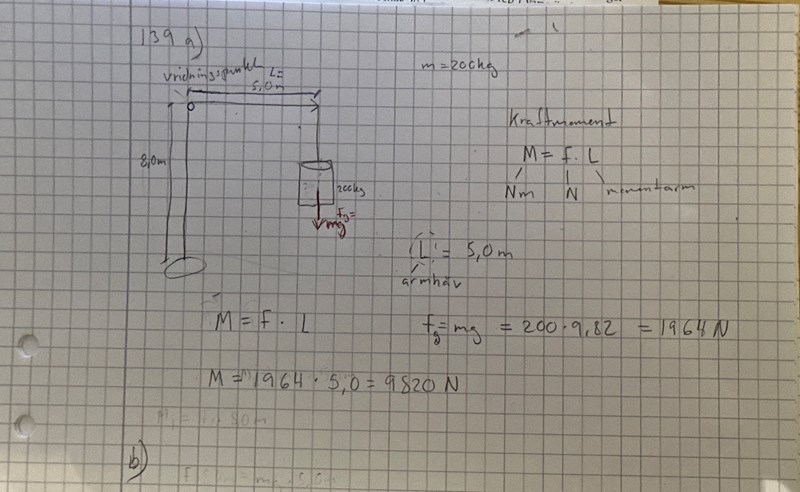 139 a)
m = 200kg
vridningspunkt
L=
5,0m
8,0m
200kg
Fg=
mg
Kraftmoment
M = F · L
Nm N momentarm
L = 5,0 m
armhäv
M = F · L
Fg = mg = 200 · 9,82 = 1964 N
M = 1964 · 5,0 = 9820 N
b)